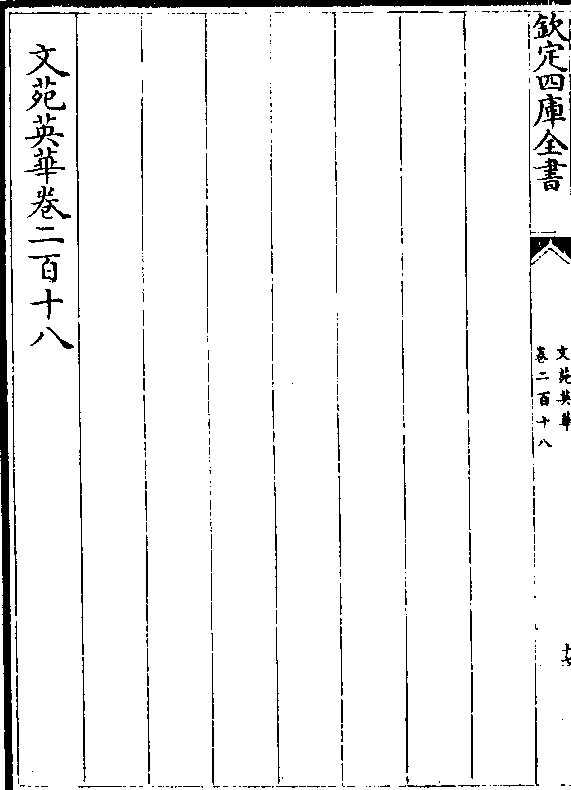 欽定四庫全書
文苑英華
卷二百十八
文苑英華卷二百十八